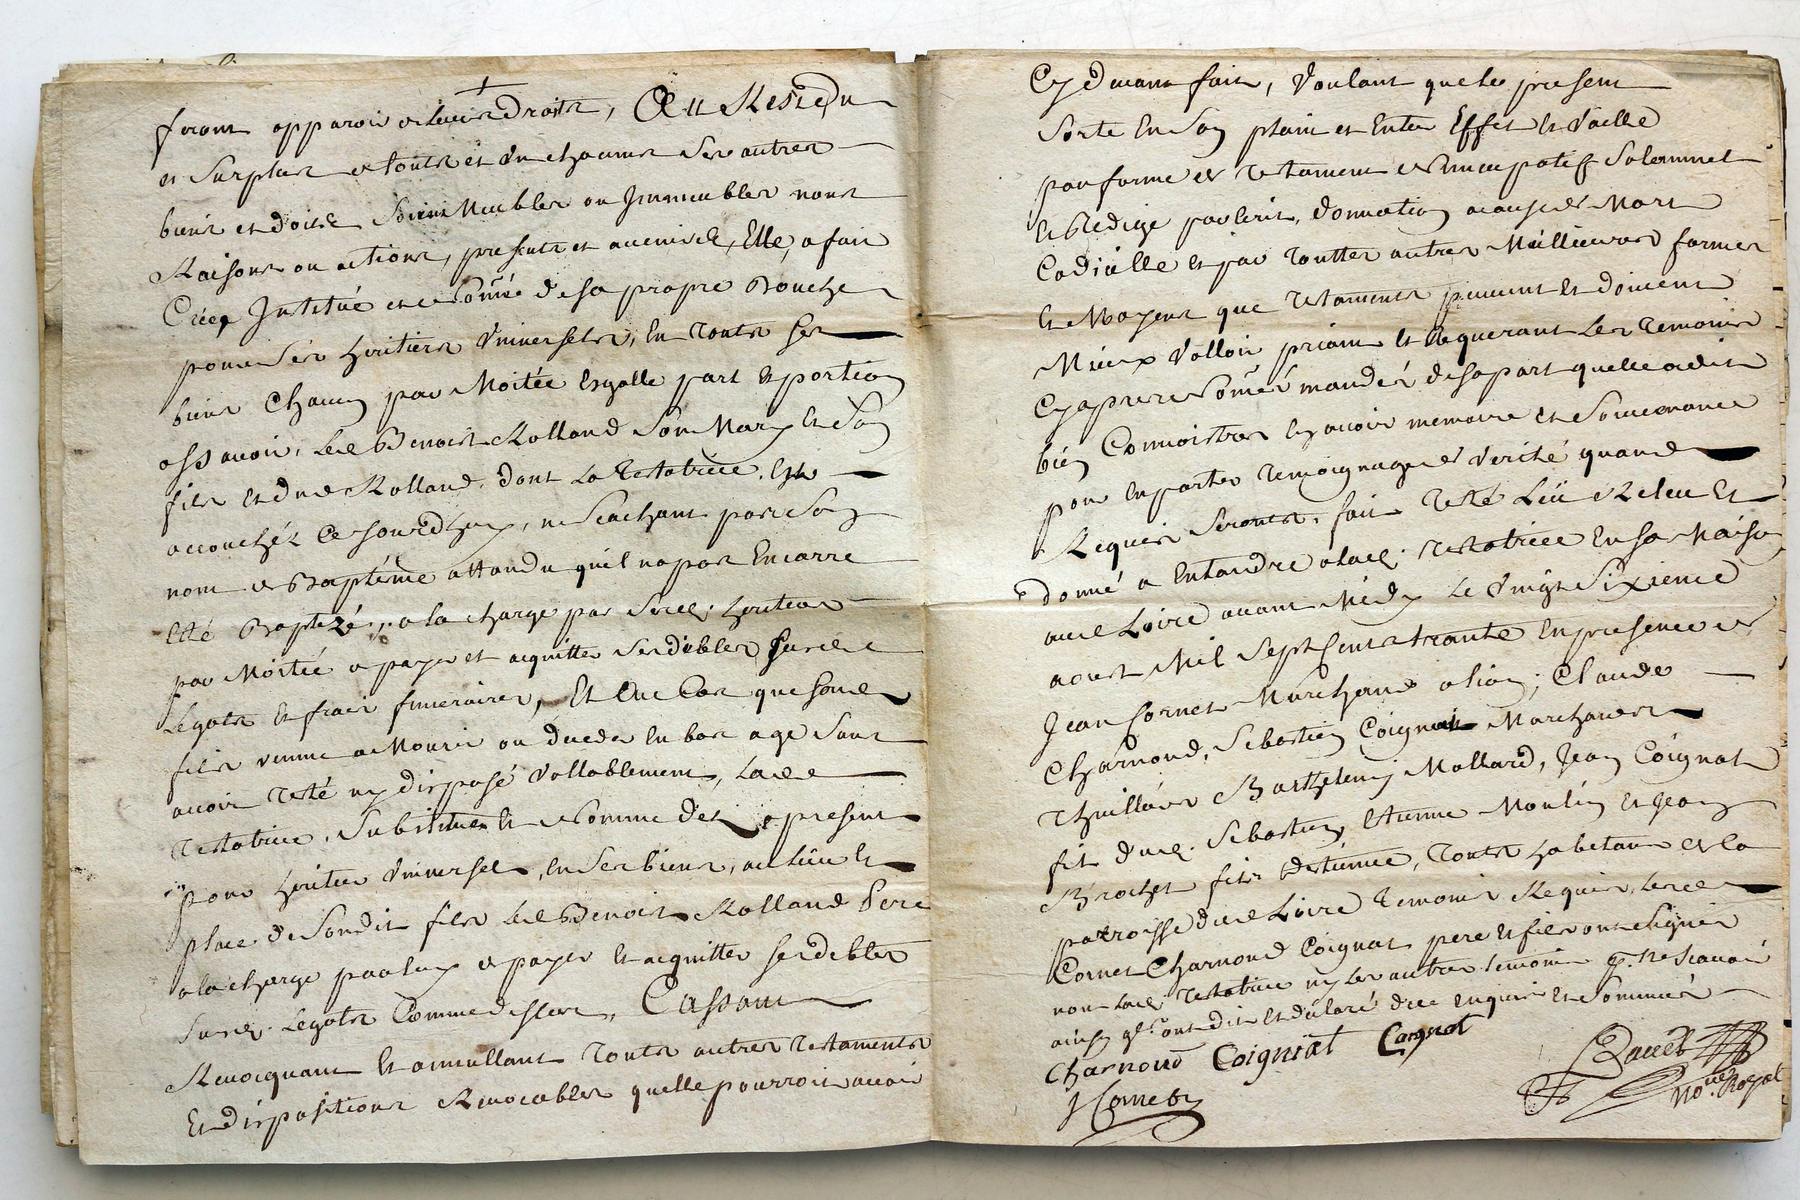 feront apparoir de leurs droits, Et au Reste du
et Surplus de touts et un chacuns ses autres
biens et droits soient Meubles ou Immeubles noms
Raisons ou actions, presents et avenir, Elle, a fait
Créé Institué et Nommé de sa propre Bouche
pour ses heritiers Universels, En touts ses
biens Chacun par Moitée Esgalle part et portion
assavoir, led Benoist Rolland son Mary Et son
fils et dud Rolland, dont La Testatrice, Est
accouchéz Ce Jourdhuy, ne scachant pas son
nom de Baptéme attandu quil na pas Encorre
Eté Baptizé, a la charge par sesd. heritiers
par Moitié de payer et acquitter ses debtes susd
Legats Et frais funeraires, Et En Cas que sond
fils vienne a Mourir ou deceder En bas age Sans
avoir Testé ny disposé Vallablement, lad
Testatrice, Substitue Et Nomme dés apresent
pour heritier Universel, En ses biens, au lieu Et
place de Sondit fils led Benoist Rolland Pere
a la charge par luy de payer Et acquitter ses debtes
susd. Legats Comme dessus, Cassant
Revocquant Et annullant touts autres testaments
Et dispositions Revocables quelle pourroit avoir
Cy devant fait, Voulant que le present
Sorte En son plain et Entier Effet Et Vaille
par forme de testament Nuncupatif Solemnel
Et Redigé par Ecrit, donnation a cause de Mort
Codicille et par touttes autres Meillieures formes
Et Moyens que testaments peuvent Et doivent
Mieux Valloir priant Et Requerant Les temoins
Cy apres Nommés mandés de sa part quelle a dit
bien Connoistre En avoir memoire et Souvenance
pour En porter temoignage de Verité quand
Requis Seronts, fait testé Leü Releu Et
donné a Entandre a lad. testatrice En sa Maison
aud Loire avant Midy Le Vingt Sixieme
aoust Mil Sept Cents trante En presence de
Jean Cornet Marchand a lion; Claude
Charnoud, Sebastien Coignat Marchands
thuilliers Barthelemy Mallard, Jean Coignat
fils dud. Sebastien, Etienne Moulin Et Jean
Brochet fils d'Etienne, touts habitans de la
parroisse dud Loire temoins Requis, lesd
Cornet Charnoud Coignat pere Et fils ont Signés
non lad. testatrice ny les autres temoins p. ne scavoir
ainsy qils ont dit Et declaré de ce enquis Et Sommés
Charnoud Coigniat Coignat
J Cornet
Nore. Royal